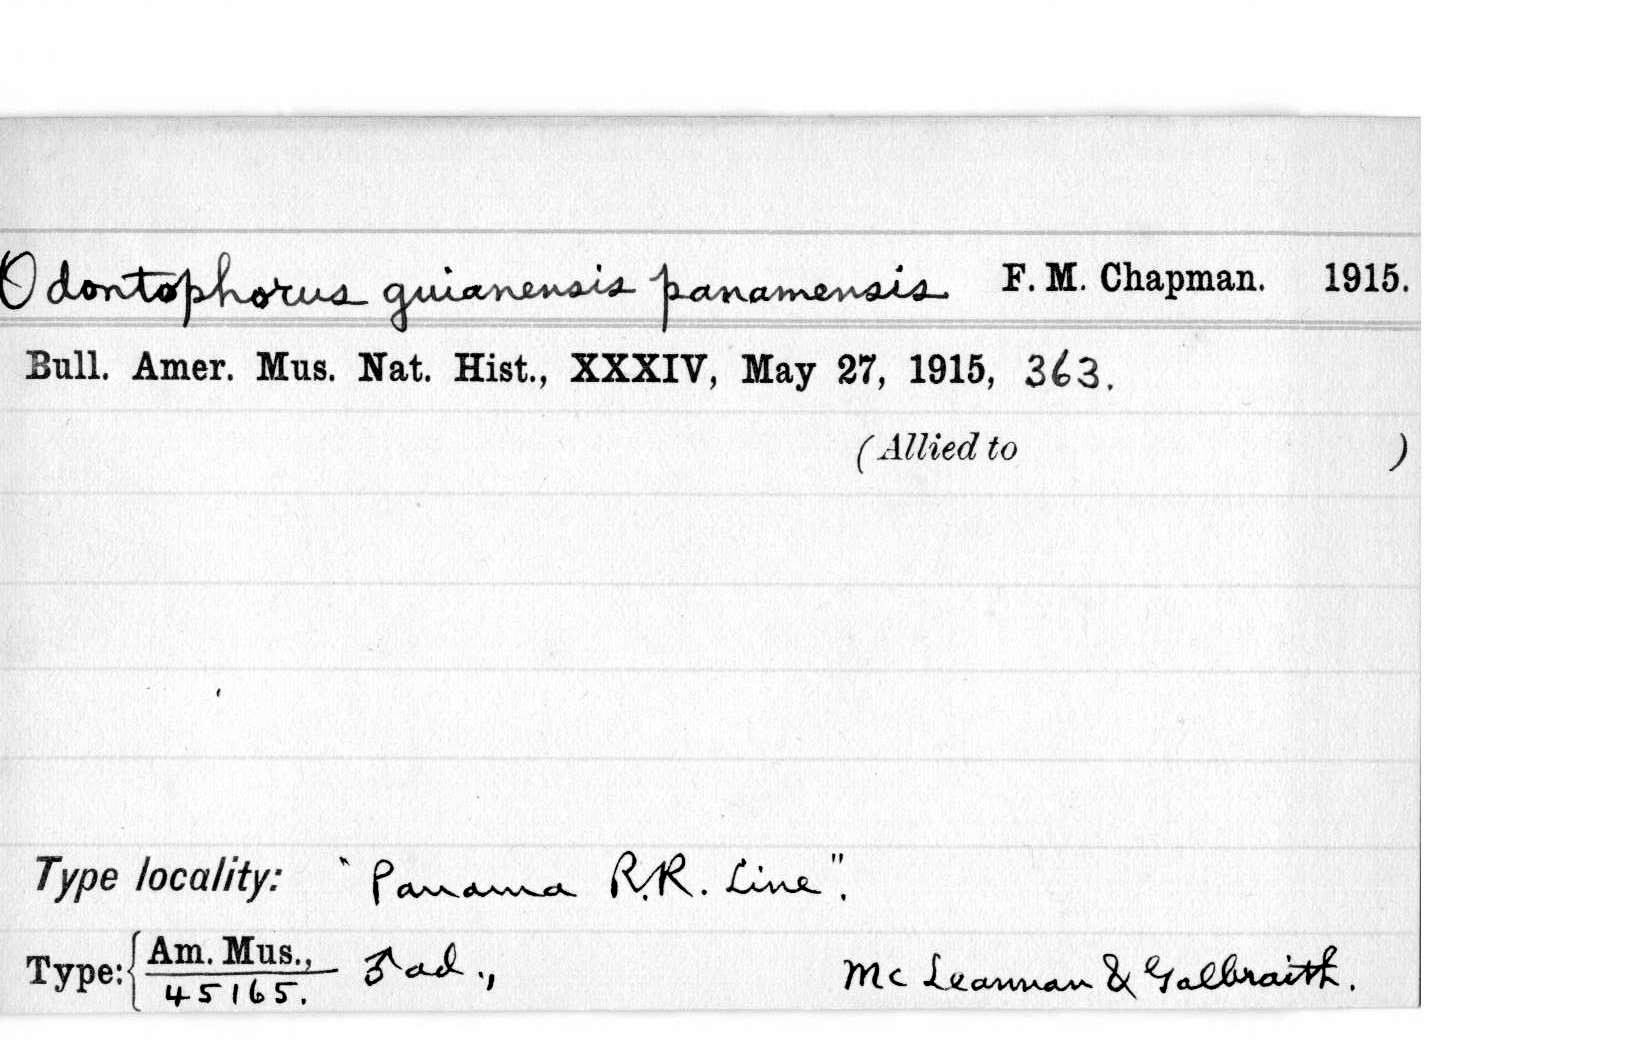 Odontophorus guianensis panamensis F. M. Chapman. 1915.
Bull. Amer. Mus. Nat. Hist., XXXIV, May 27, 1915, 363.
(Allied to )
Type locality: "Panama R.R. Line".
Type: { Am. Mus., ♂ ad., Mc Leannan & Galbraith.
45165.